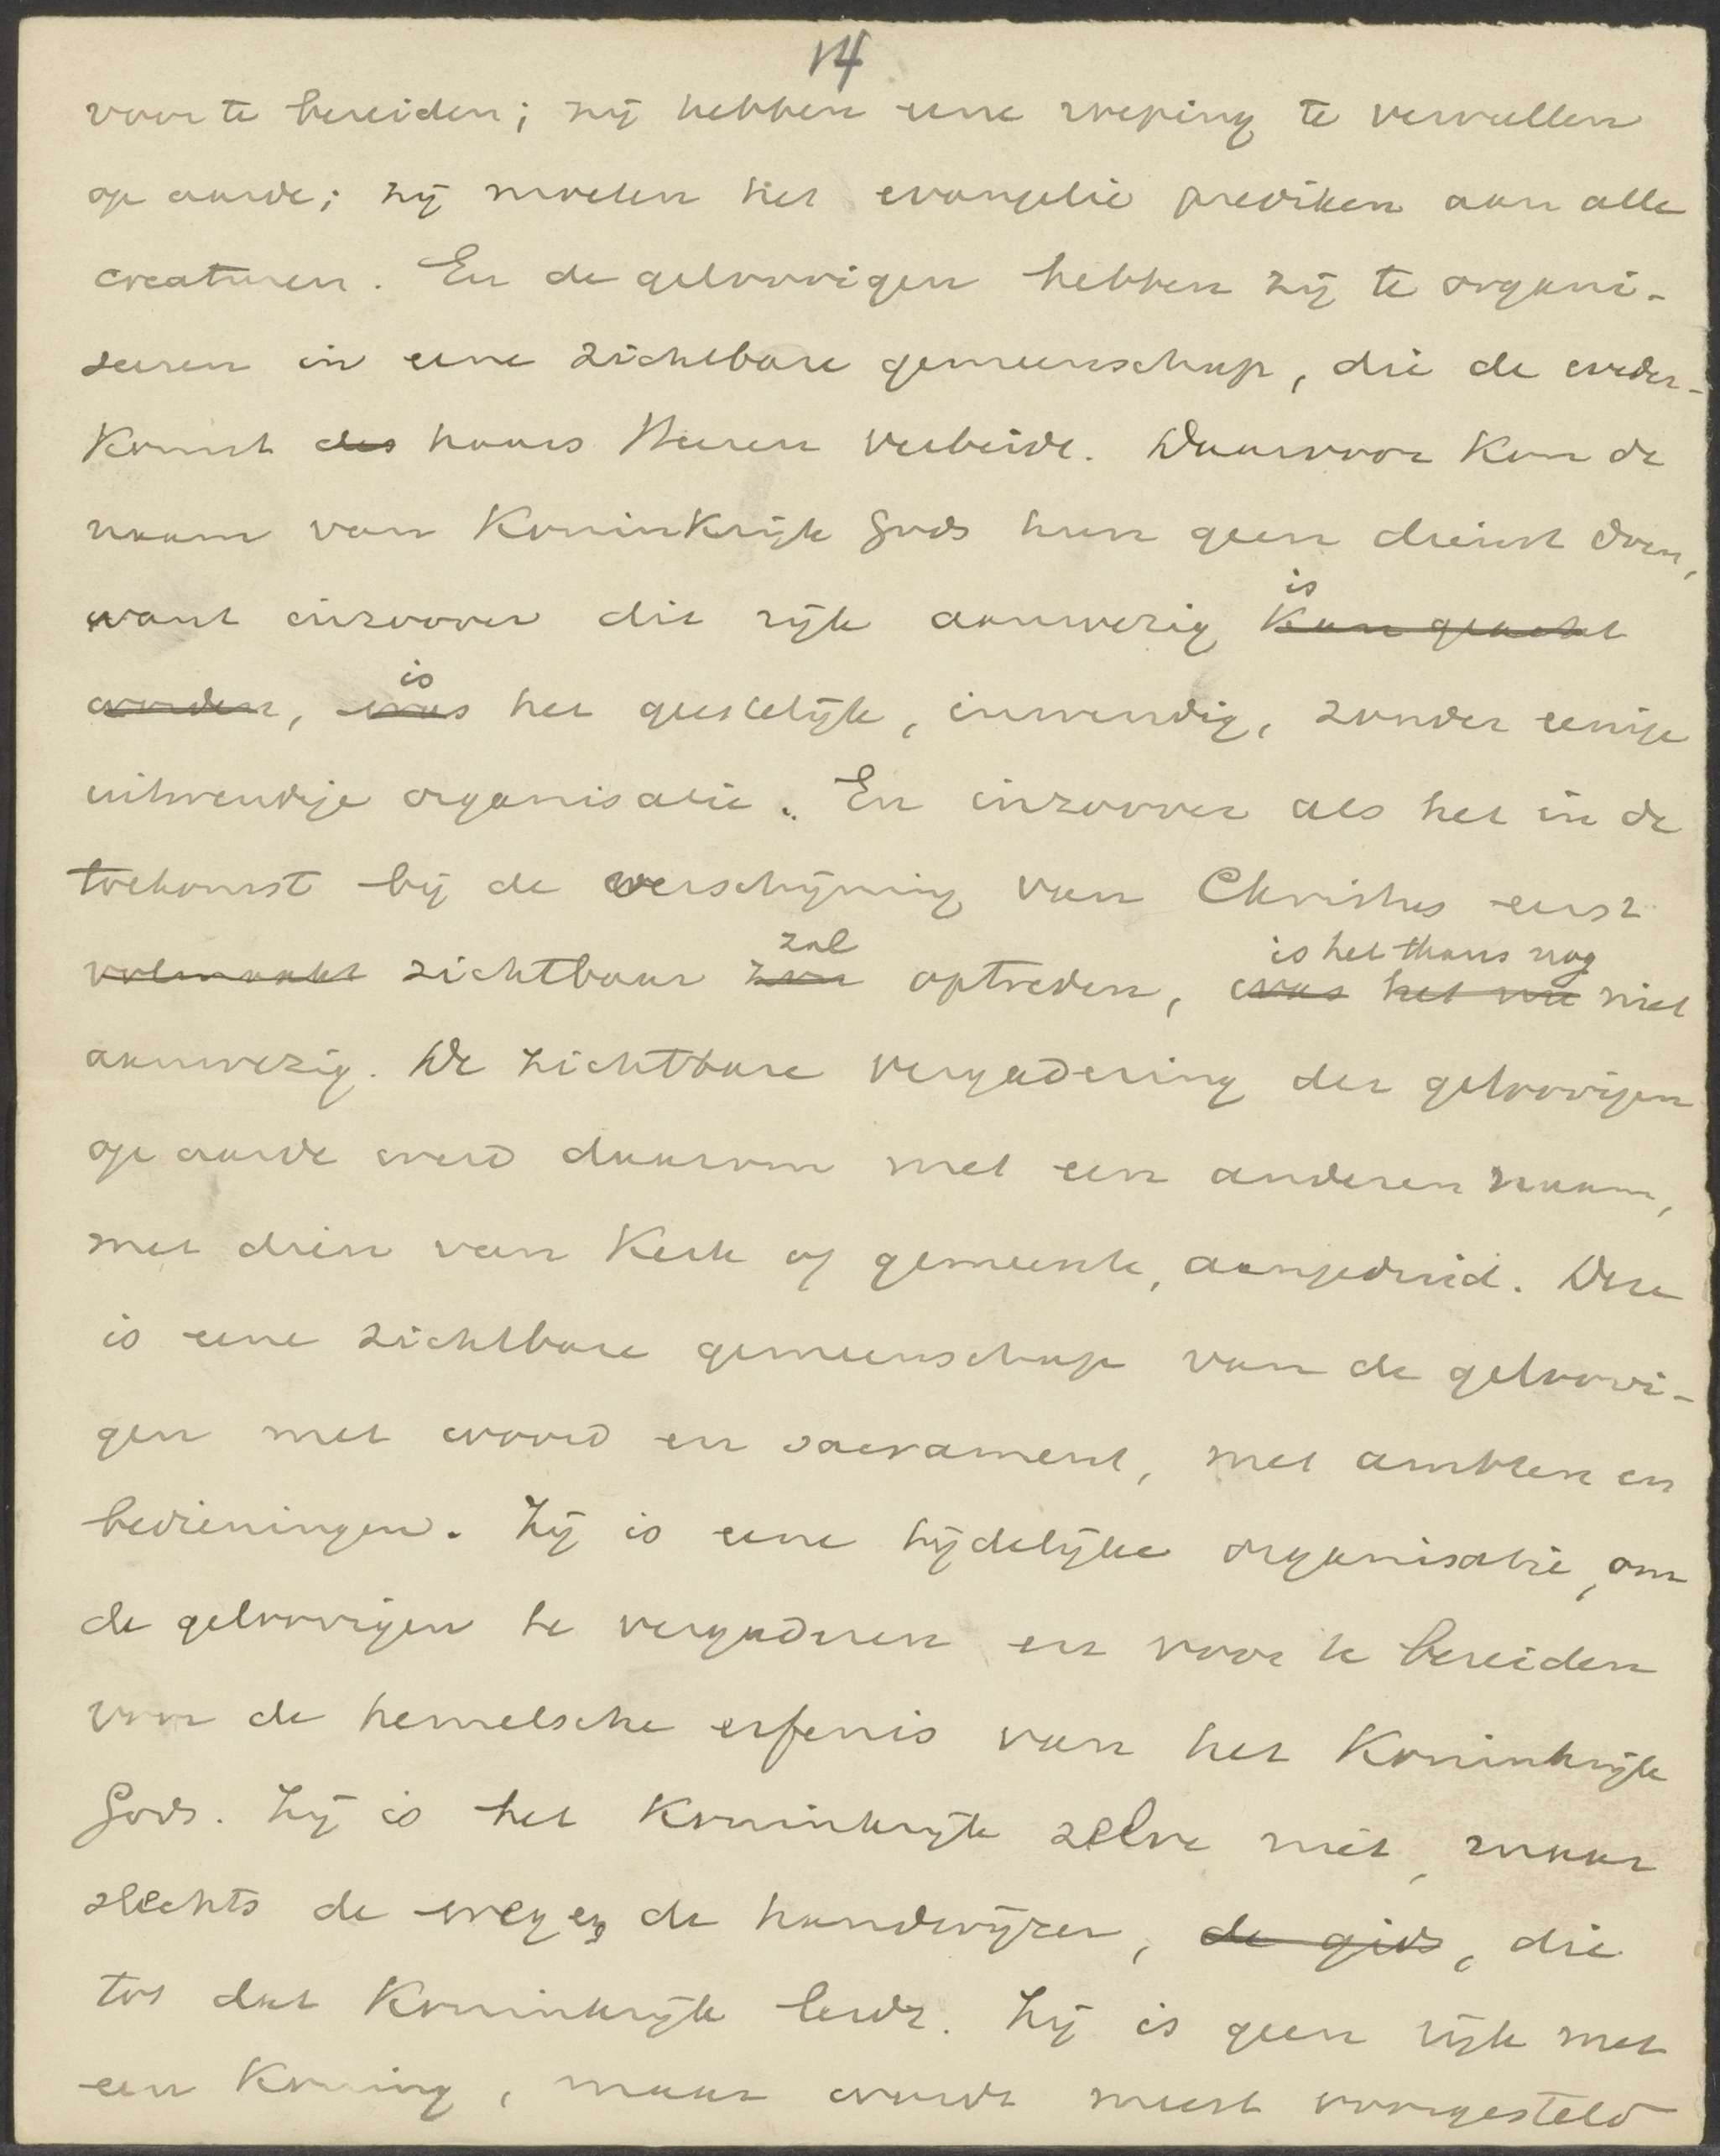 14
voor te bereiden; zij hebben eene roeping te vervullen
op aarde; zij moeten het evangelie prediken aan alle
creaturen. En de geloovigen hebben zij te organi-
seeren in eene zichtbare gemeenschap, die de weder-
komst des haars Heeren verbeidt. Daarvoor kon de
naam van Koninkrijk Gods hun geen dienst doen,
is
want inzoover dit rijk aanwezig kan geacht
is
worden, was het geestelijk, inwendig, zonder eenige
uitwendige organisatie. En inzoover als het in de
toekomst bij de verschijning van Christus eerst
zal is het thans nog
volmaakt zichtbaar zou optreden, was het nu niet
aanwezig. De zichtbare vergadering der geloovigen
op aarde werd daarom met een anderen naam,
met dien van Kerk of gemeente, aangeduid. Deze
is eene zichtbare gemeenschap van de geloovi-
gen met woord en sacrament, met ambten en
bedieningen. Zij is eene tijdelijke organisatie, om
de geloovigen te vergaderen en voor te bereiden
voor de hemelsche erfenis van het Koninkrijk
Gods. Zij is het Koninkrijk zelve niet, maar
slechts de weg en de handwijzer, de gids, die
tot dat Koninkrijk leidt. Zij is geen rijk met
een Koning, maar wordt meest voorgesteld